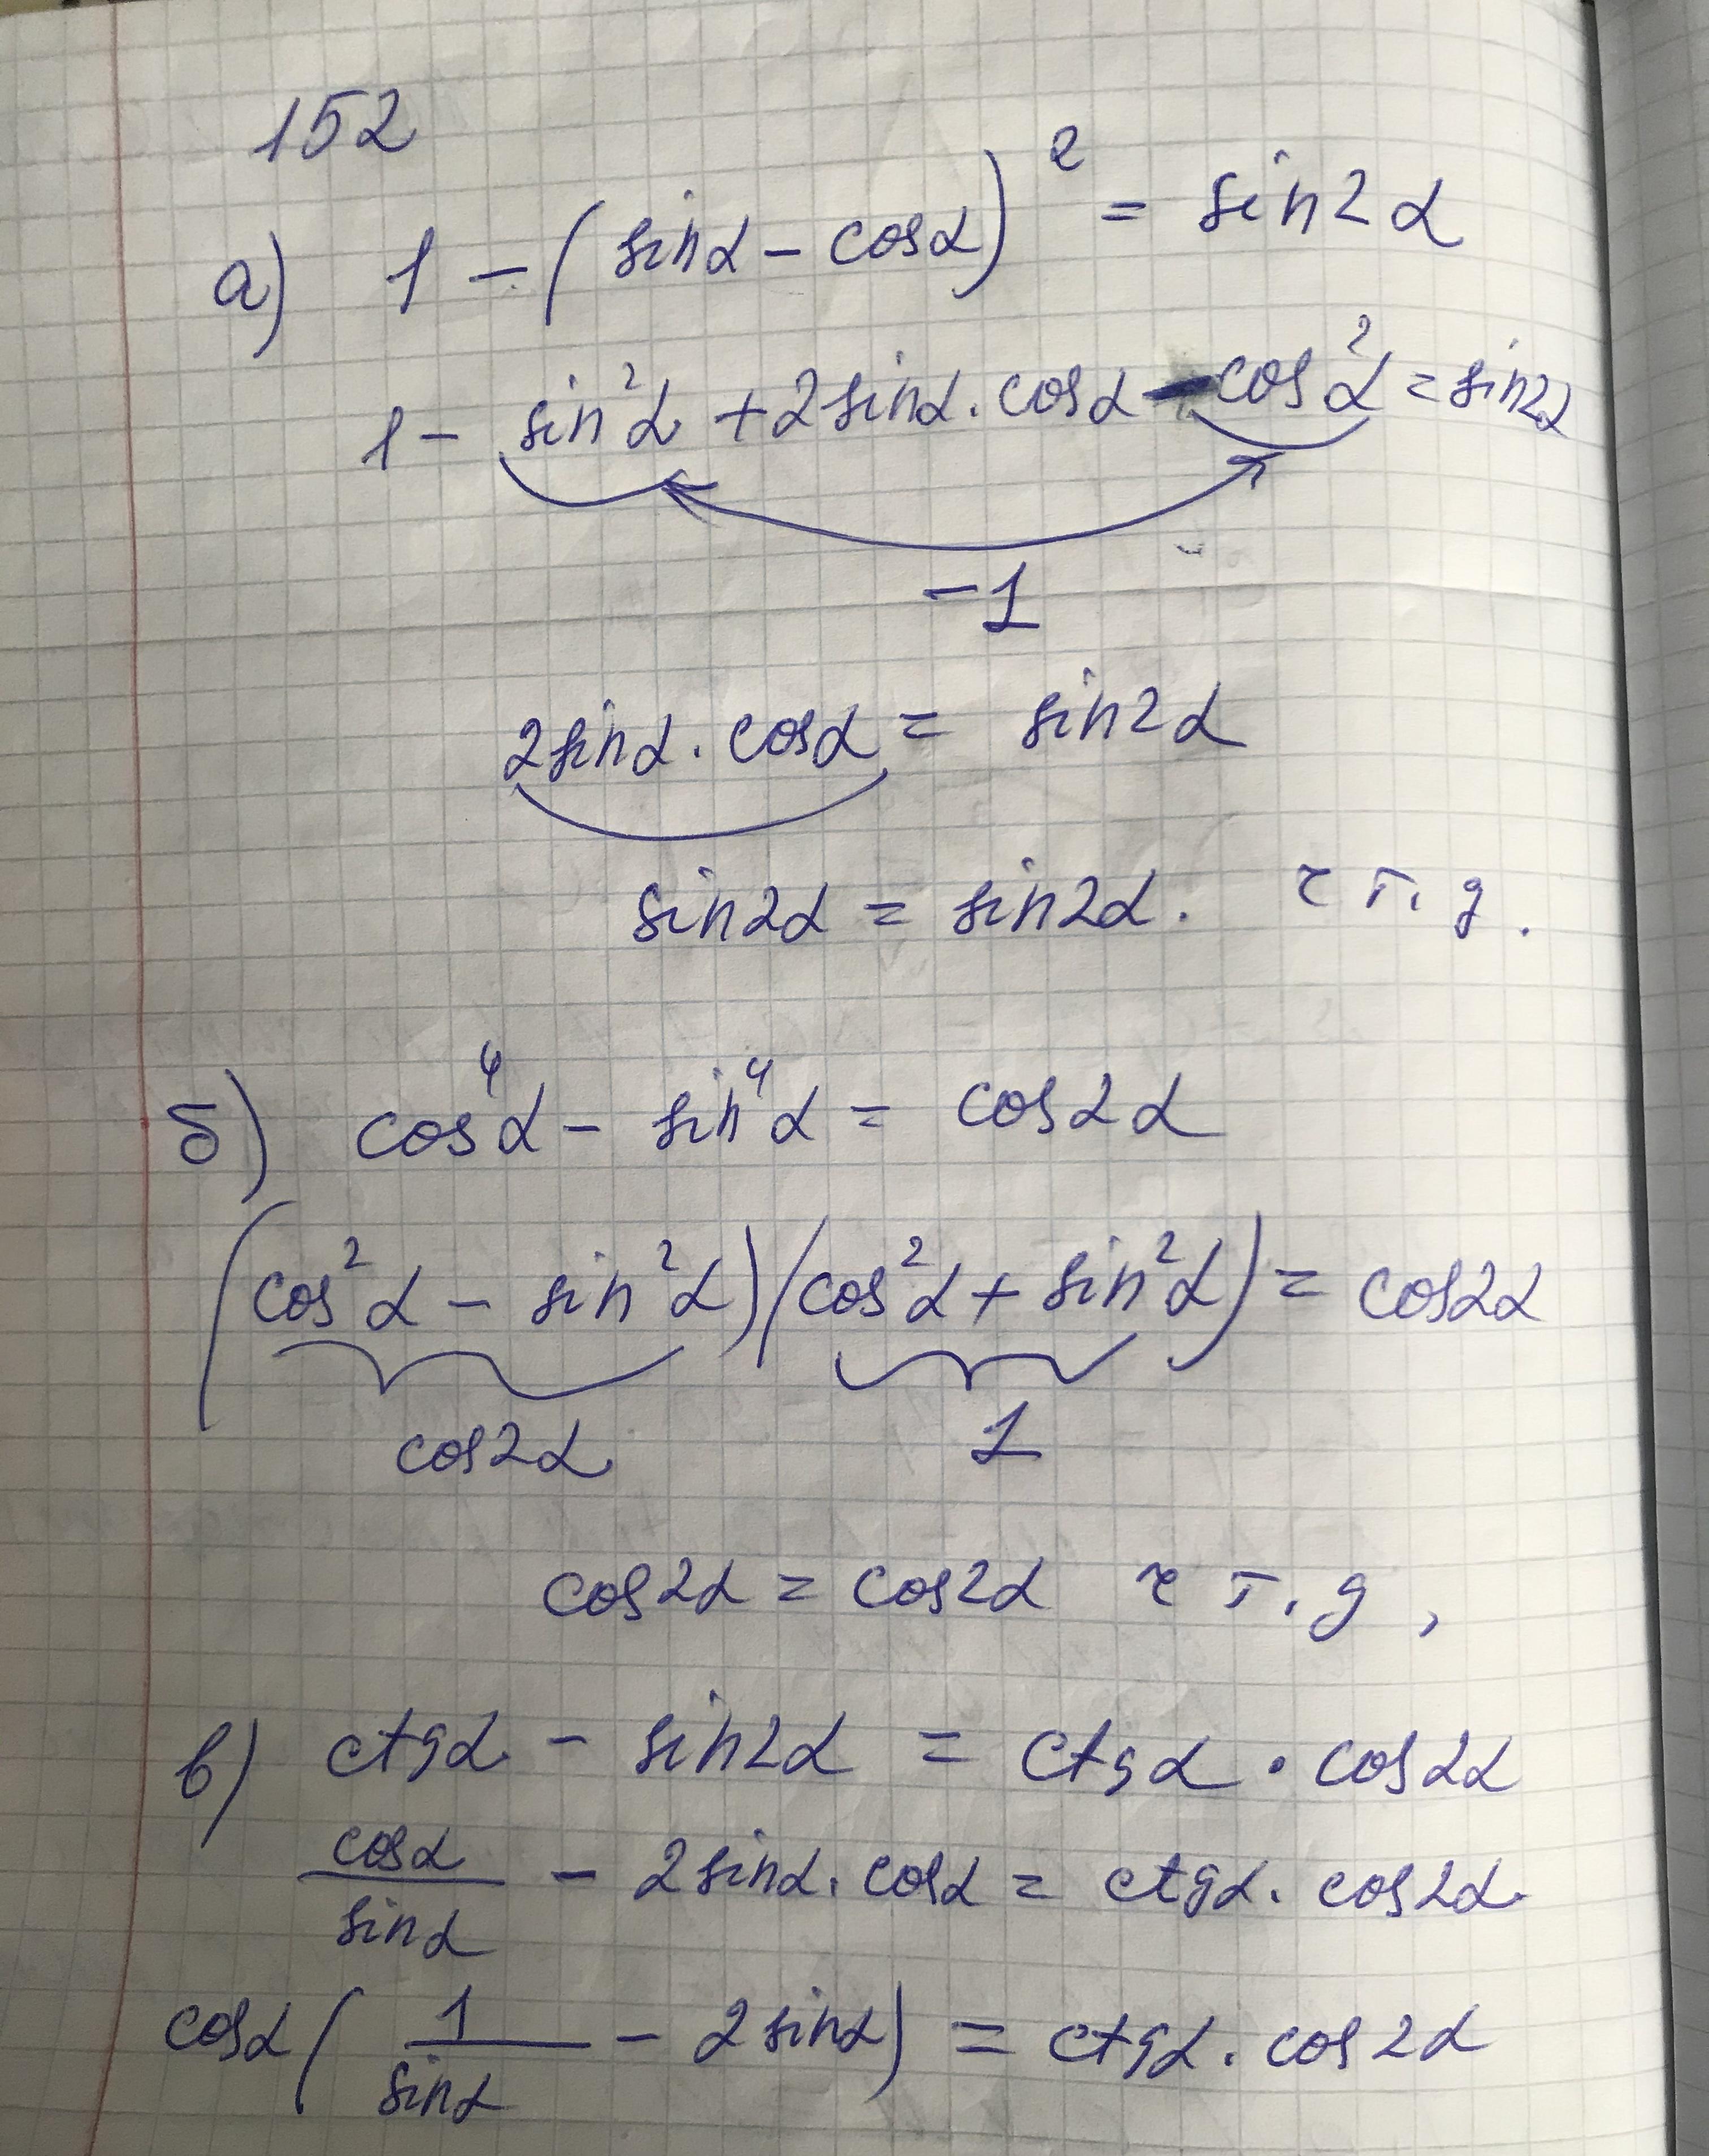 152
а) 1 - (sinα - cosα)² = sin2α
1 - sin²α + 2sinα · cosα - cos²α = sin2α
-1
2sinα · cosα = sin2α
sin2α = sin2α. ч т. д.
б) cos⁴α - sin⁴α = cos2α
(cos²α - sin²α)(cos²α + sin²α) = cos2α
cos2α 1
cos2α = cos2α ч т. д,
в) ctgα - sin2α = ctgα · cos2α
cosα/sinα - 2sinα · cosα = ctgα · cos2α
cosα(1/sinα - 2sinα) = ctgα · cos2α